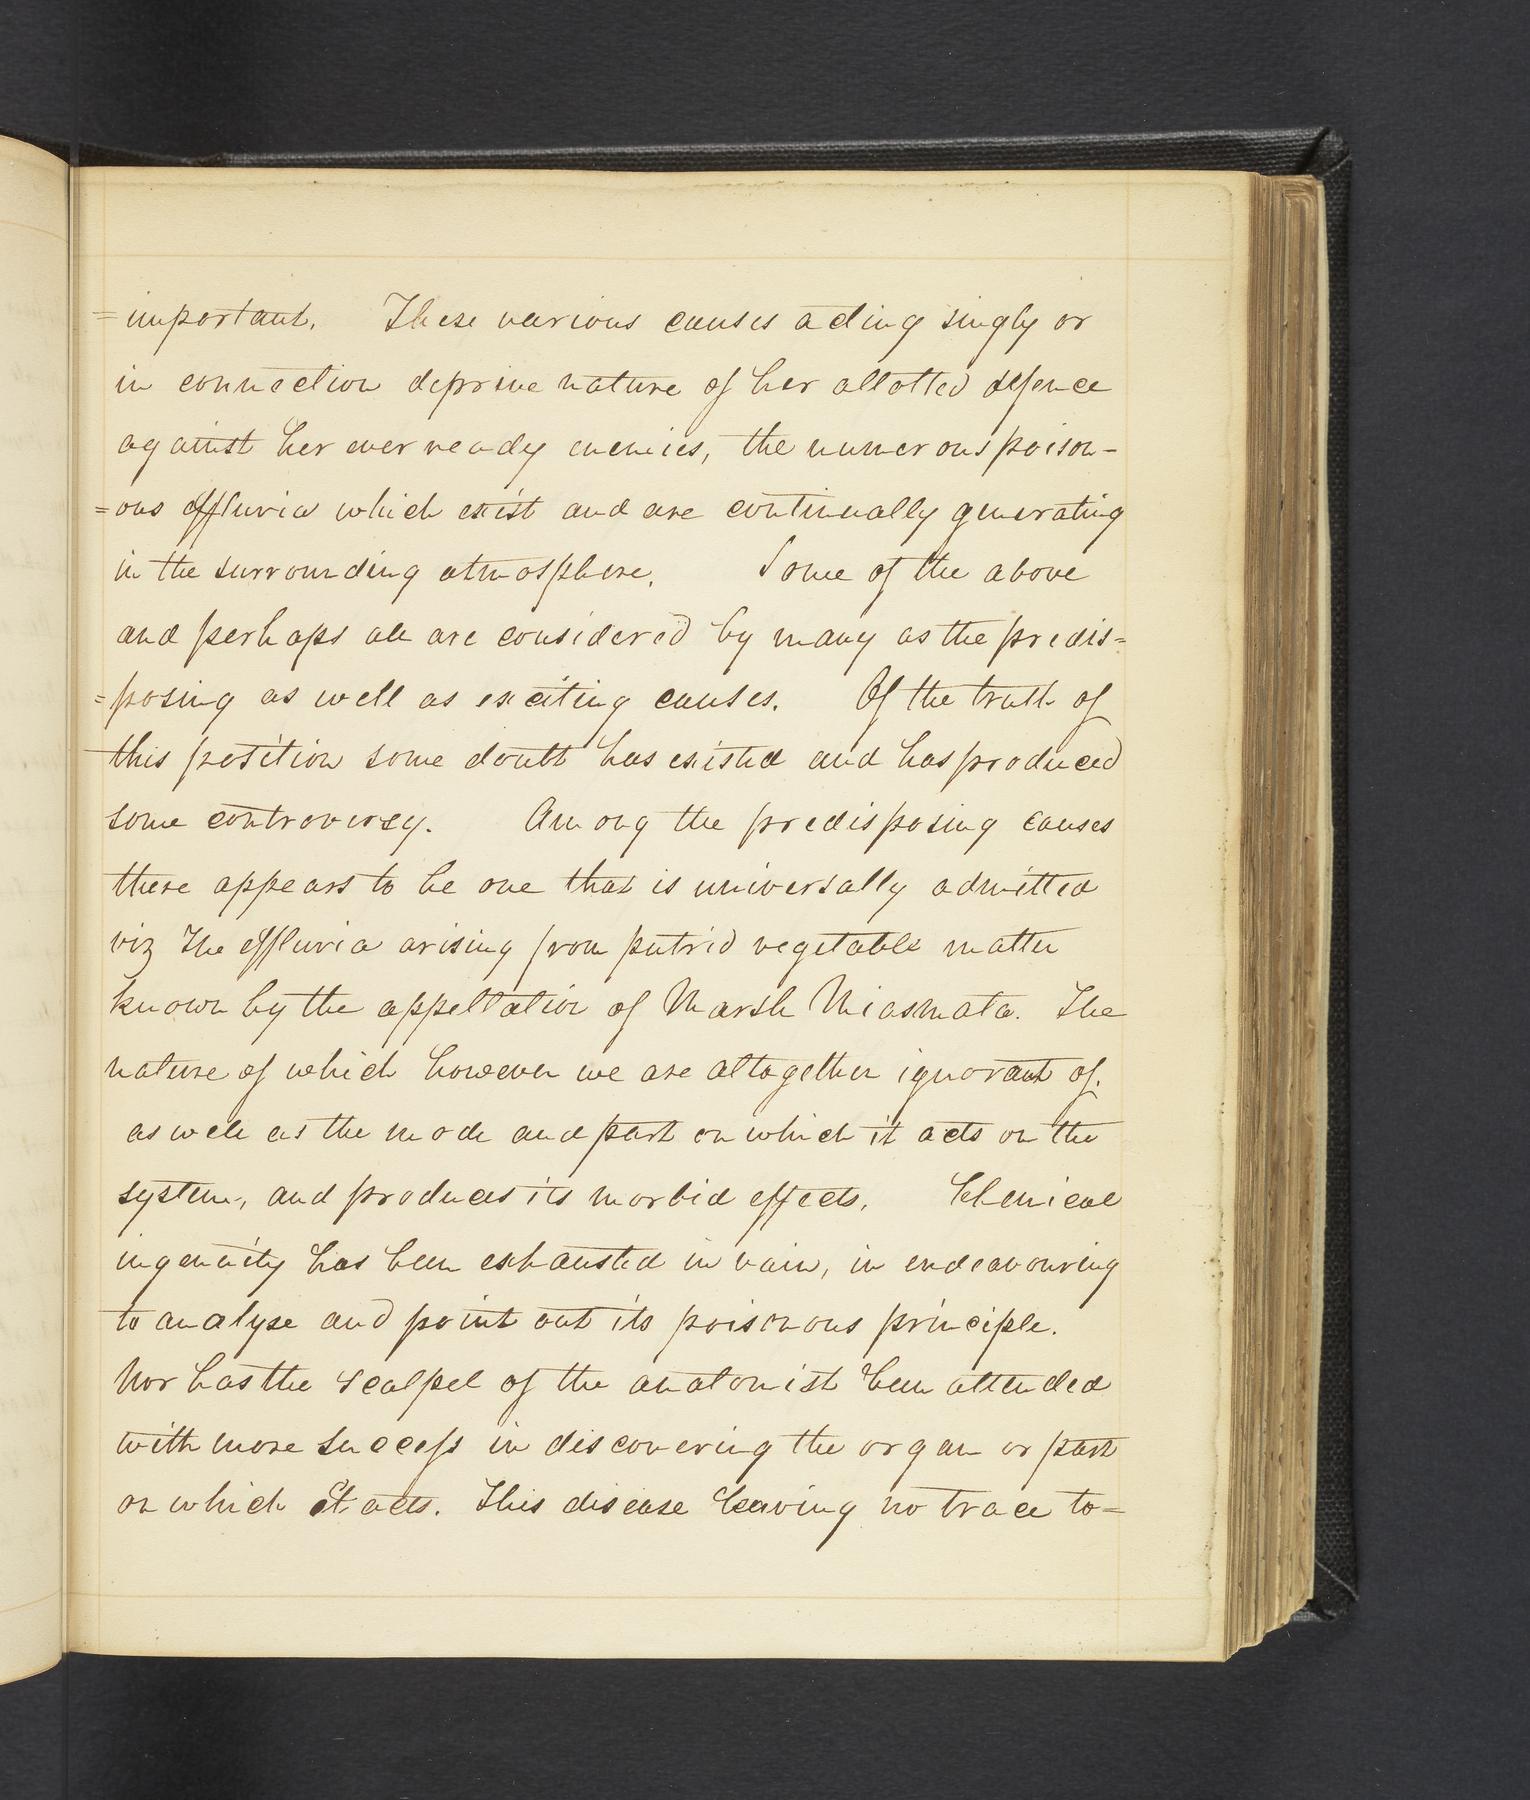 =important. These various causes acting singly or
in connection deprive nature of her allotted defence
against her ever ready enemies, the numerous poison-
=ous effluvia which exist and are continually generating
in the surrounding atmosphere. Some of the above
and perhaps all are considered by many as the predis=
=posing as well as exciting causes. Of the truth of
this position some doubt has existed and has produced
some controversy. Among the predisposing causes
there appears to be one that is universally admitted
viz The effluvia arising from putrid vegetable matter
known by the appellation of Marsh Miasmata. The
nature of which however we are altogether ignorant of.
as well as the mode and part on which it acts on the
system, and produces its morbid effects. Chemical
ingenuity has been exhausted in vain, in endeavouring
to analyse and point out its poisonous principle.
Nor has the scalpel of the anatomist been attended
with more success in discovering the organ or part
on which It acts. This disease leaving no trace to=